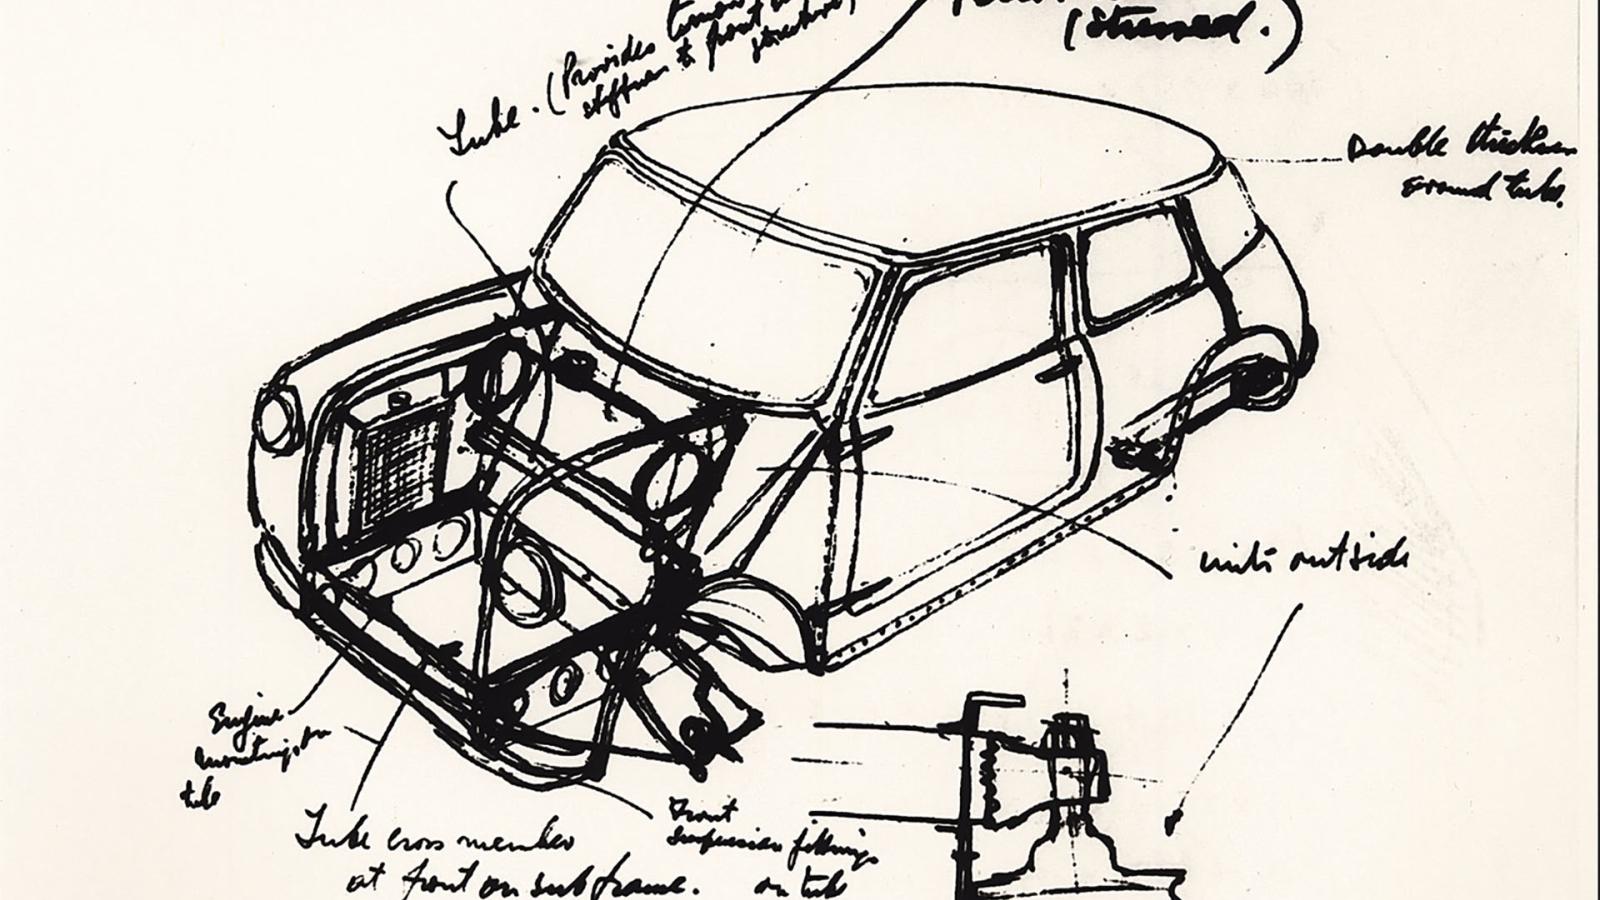 (stressed.)
Tube. (Provides
stiffness to front
structure)
Double thickness
around tube.
units outside
Engine
mounting on
tube
Tube cross member
at front on subframe.
Front
suspension fittings
on tube